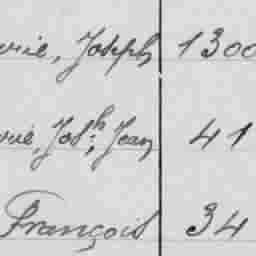 Joseph 1300
Jos.h, Jean 41
François 34